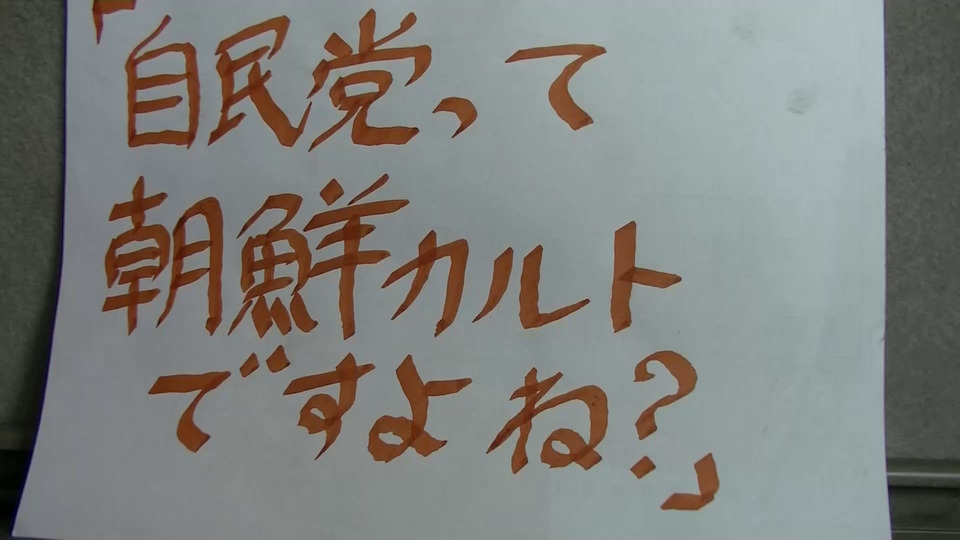 「自民党って
朝鮮カルト
ですよね?」